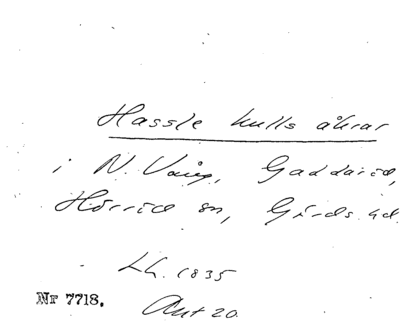 Hassle kulls åkrar
i N. Vång, Gaddaröd,
Hörröd sn, Gärds hd.
Lh. 1835
Nr 7718.
Akt 20.